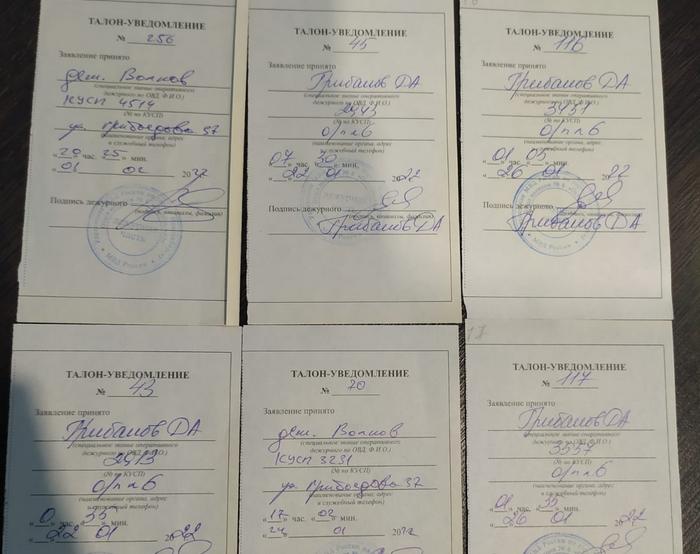 ТАЛОН-УВЕДОМЛЕНИЕ
№ 256
Заявление принято
деж. Волков
(специальное звание оперативного
дежурного по ОВД, Ф.И.О.)
КУСП 4514
(№ по КУСП)
ул. Грибоедова 37
(наименование органа, адрес
и служебный телефон)
«20» час. «25» мин.
«01» 02 2022
Подпись дежурного
(подпись, инициалы, фамилия)
ТАЛОН-УВЕДОМЛЕНИЕ
№ 45
Заявление принято
Грибанов ДА
(специальное звание оперативного
дежурного по ОВД, Ф.И.О.)
(№ по КУСП)
о/п п 6
(наименование органа, адрес
и служебный телефон)
«07» час. «30» мин.
«22» 01 2022
Подпись дежурного
(подпись, инициалы, фамилия)
Грибанов ДА
ТАЛОН-УВЕДОМЛЕНИЕ
№ 116
Заявление принято
Грибанов ДА
(специальное звание оперативного
дежурного по ОВД, Ф.И.О.)
3431
(№ по КУСП)
о/п п 6
(наименование органа, адрес
и служебный телефон)
«01» час. «05» мин.
«26» 01 2022
Подпись дежурного
(подпись, инициалы, фамилия)
Грибанов ДА
ТАЛОН-УВЕДОМЛЕНИЕ
№ 43
Заявление принято
Грибанов ДА
(специальное звание оперативного
дежурного по ОВД, Ф.И.О.)
(№ по КУСП)
о/п п 6
(наименование органа, адрес
и служебный телефон)
час. «35» мин.
«22» 01 2022
ТАЛОН-УВЕДОМЛЕНИЕ
№ 70
Заявление принято
деж. Волков
(специальное звание оперативного
дежурного по ОВД, Ф.И.О.)
КУСП 3231
(№ по КУСП)
ул Грибоедова 37
(наименование органа, адрес
и служебный телефон)
«17» час. «02» мин.
«24» 01 2022
17
ТАЛОН-УВЕДОМЛЕНИЕ
№ 117
Заявление принято
Грибанов ДА
(специальное звание оперативного
дежурного по ОВД, Ф.И.О.)
(№ по КУСП)
о/п п 6
(наименование органа, адрес
и служебный телефон)
«01» час. «35» мин.
«26» 01 2022